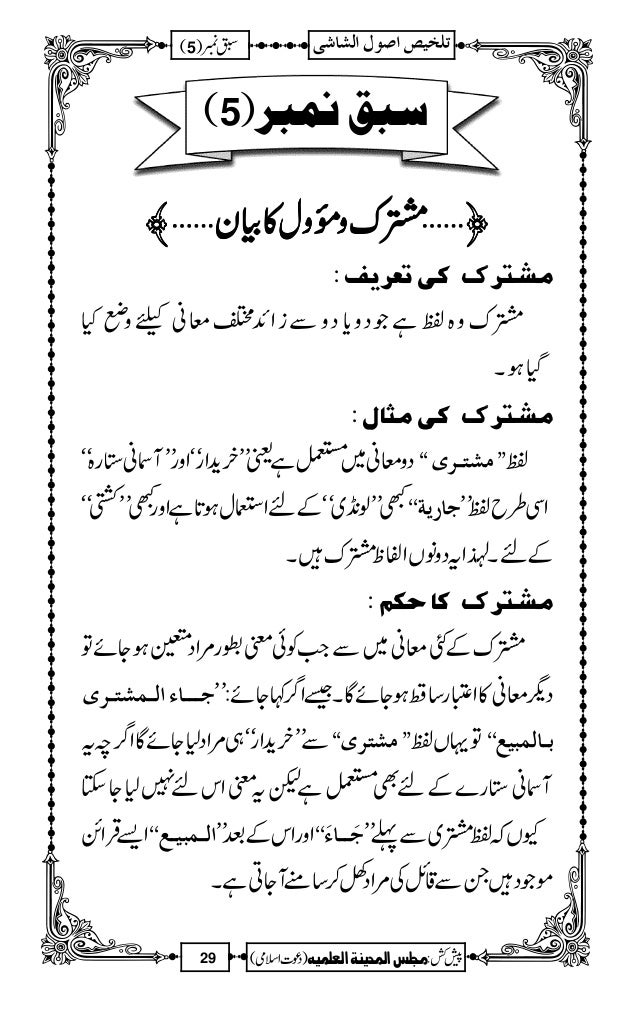 تلخیص اصول الشاشی
سبق نمبر (5)
سبق نمبر (5)
......مشترک و مؤول کا بیان......
مشترک کی تعریف :
مشترک وہ لفظ ہے جو دو یا دو سے زائد مختلف معانی کیلئے وضع کیا
گیا ہو ۔
مشترک کی مثال :
لفظ ” مشتری “ دو معانی میں مستعمل ہے یعنی ”خریدار“ اور ”آسمانی ستارہ“
اسی طرح لفظ ”جارية“ کبھی ”لونڈی“ کے لئے استعمال ہوتا ہے اور کبھی ”کشتی“
کے لئے ۔ لہذا یہ دونوں الفاظ مشترک ہیں ۔
مشترک کا حکم :
مشترک کے کئی معانی میں سے جب کوئی معنی بطور مراد متعین ہو جائے تو
دیگر معانی کا اعتبار ساقط ہو جائے گا ۔ جیسے اگر کہا جائے : ”جاء المشتری
بالمبیع“ تو یہاں لفظ ” مشتری“ سے ”خریدار“ ہی مراد لیا جائے گا اگر چہ یہ
آسمانی ستارے کے لئے بھی مستعمل ہے لیکن یہ معنی اس لئے نہیں لیا جا سکتا
کیوں کہ لفظ مشتری سے پہلے ”جَاءَ“ اور اس کے بعد ”المبیع“ ایسے قرائن
موجود ہیں جن سے قائل کی مراد کھل کر سامنے آجاتی ہے ۔
پیش کش : مجلس المدینة العلمیه (دعوت اسلامی)
29